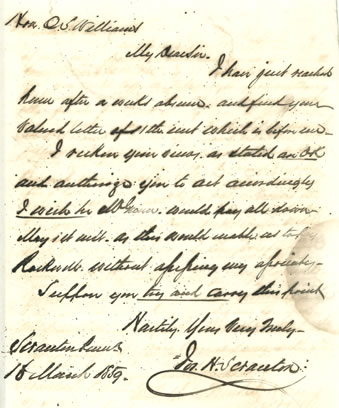 Hon. C. S. Williams
My Dear Sir.
I have just reached
home after a weeks absence. and find your
valued letter of 11th inst which is before me—
I reckon your views, as stated are OK
and authorize you to act accordingly
I wish he would pay all down—
as this would enable us to
Rockwell. without my
Suppose you try and carry this point
Heartily Yours Very Truly—
Scranton Penna
18 March 1859.
Jos. H. Scranton.